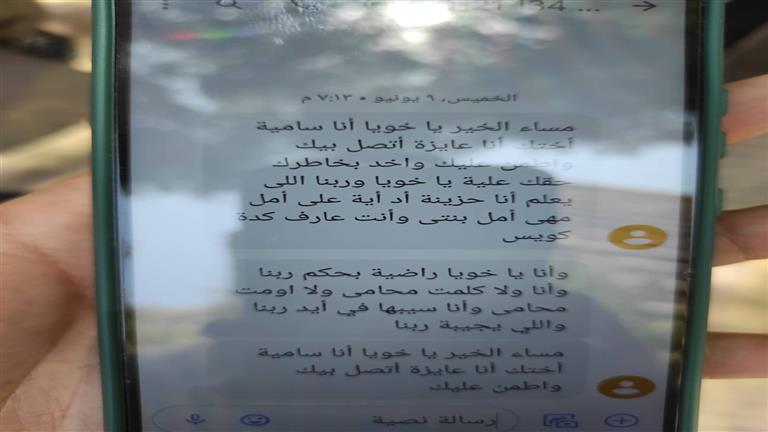 الخميس، ٩ يونيو • ٧:١٣ م
مساء الخير يا خويا أنا سامية
أختك أنا عايزة أتصل بيك
واطمن عليك واخد بخاطرك
حقك علية يا خويا وربنا اللى
يعلم أنا حزينة أد أية على أمل
مهى أمل بنتى وأنت عارف كدة
كويس
وأنا يا خويا راضية بحكم ربنا
وأنا ولا كلمت محامى ولا اومت
محامى وأنا سيبها في أيد ربنا
واللي يجيبة ربنا
مساء الخير يا خويا أنا سامية
أختك أنا عايزة أتصل بيك
واطمن عليك
رسالة نصية